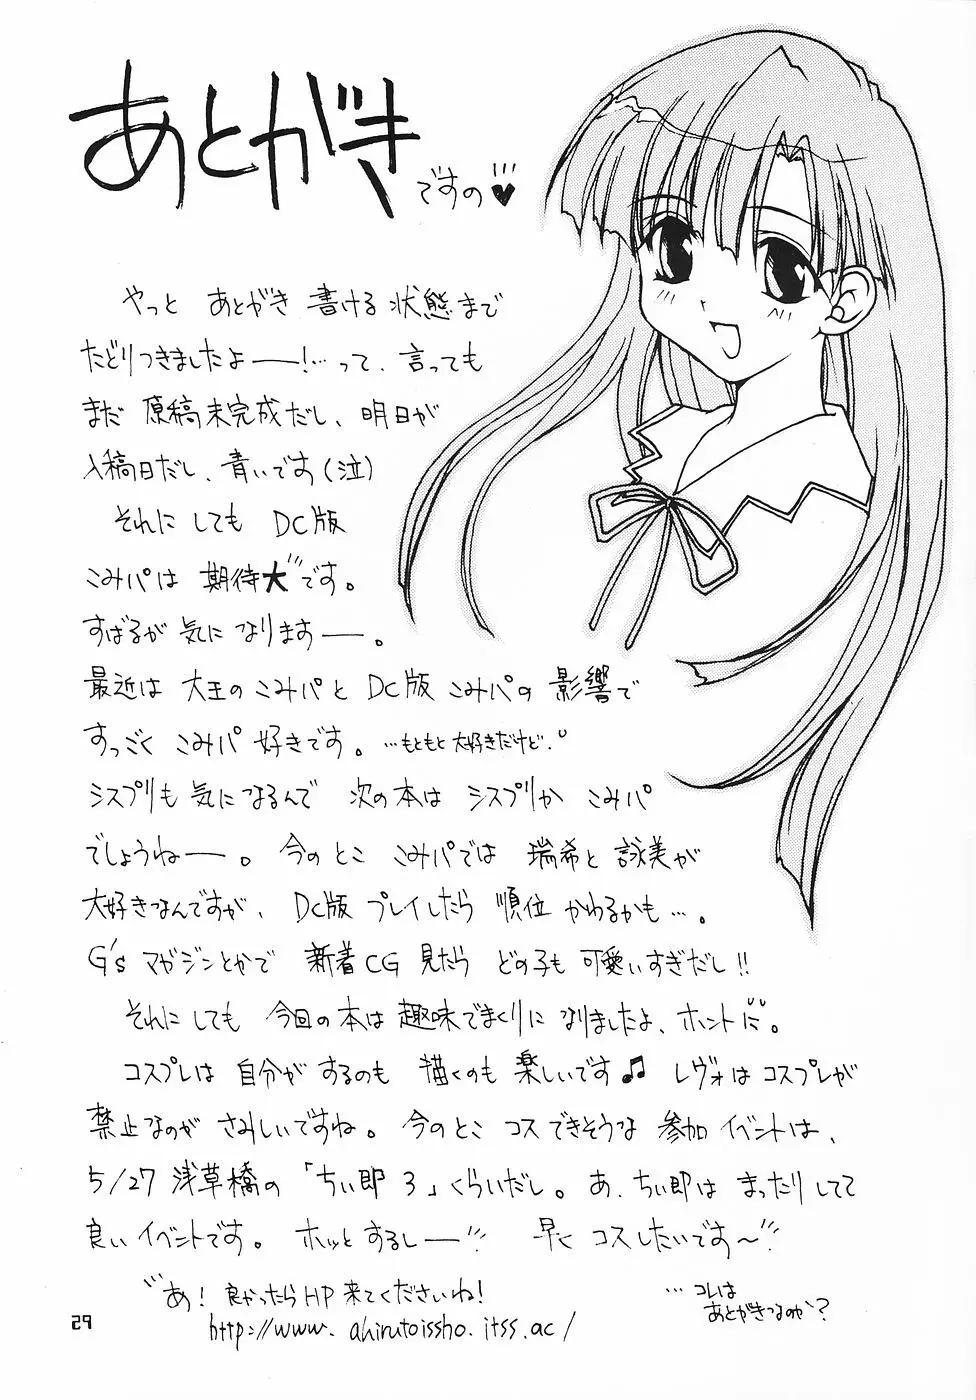 あとがき
ですの♥
やっと あとがき 書ける 状態まで
たどりつきましたよーー!…って、言っても
まだ 原稿未完成だし、明日が
入稿日だし、青いです(泣)
それにしても DC版
こみパは 期待大です。
すばるが 気に なりますーー。
最近は 大王の こみパと DC版 こみパの 影響で
すっごく こみパ 好きです。…もともと 大好きだけど。
シスプリも 気になるんで 次の本は シスプリか こみパ
でしょうねーー。今のとこ こみパでは 瑞希と 詠美が
大好きなんですが、DC版 プレイしたら 順位 かわるかも…。
G'sマガジンとかで 新着CG 見たら どの子も 可愛いすぎだし!!
それにしても 今回の本は 趣味でまくりに なりましたよ、ホントに。
コスプレは 自分が するのも 描くのも 楽しいです♫ レヴォは コスプレが
禁止なのが さみしいですね。今のとこ コス できそうな 参加 イベントは、
5/27 浅草橋の「ちぃ即 3」くらいだし。あ、ちぃ即は まったりしてて
良い イベントです。ホッと するしーー 早く コスしたいです〜
あ! 良かったら HP 来てくださいね!
http://www.ahirutoissho.itss.ac/
…コレは
あとがきなのか?
29